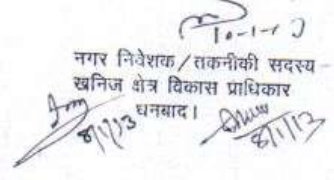 10-1-13
नगर निवेशक/तकनीकी सदस्य
खनिज क्षेत्र विकास प्राधिकार
धनबाद।
8/1/13
8/1/13